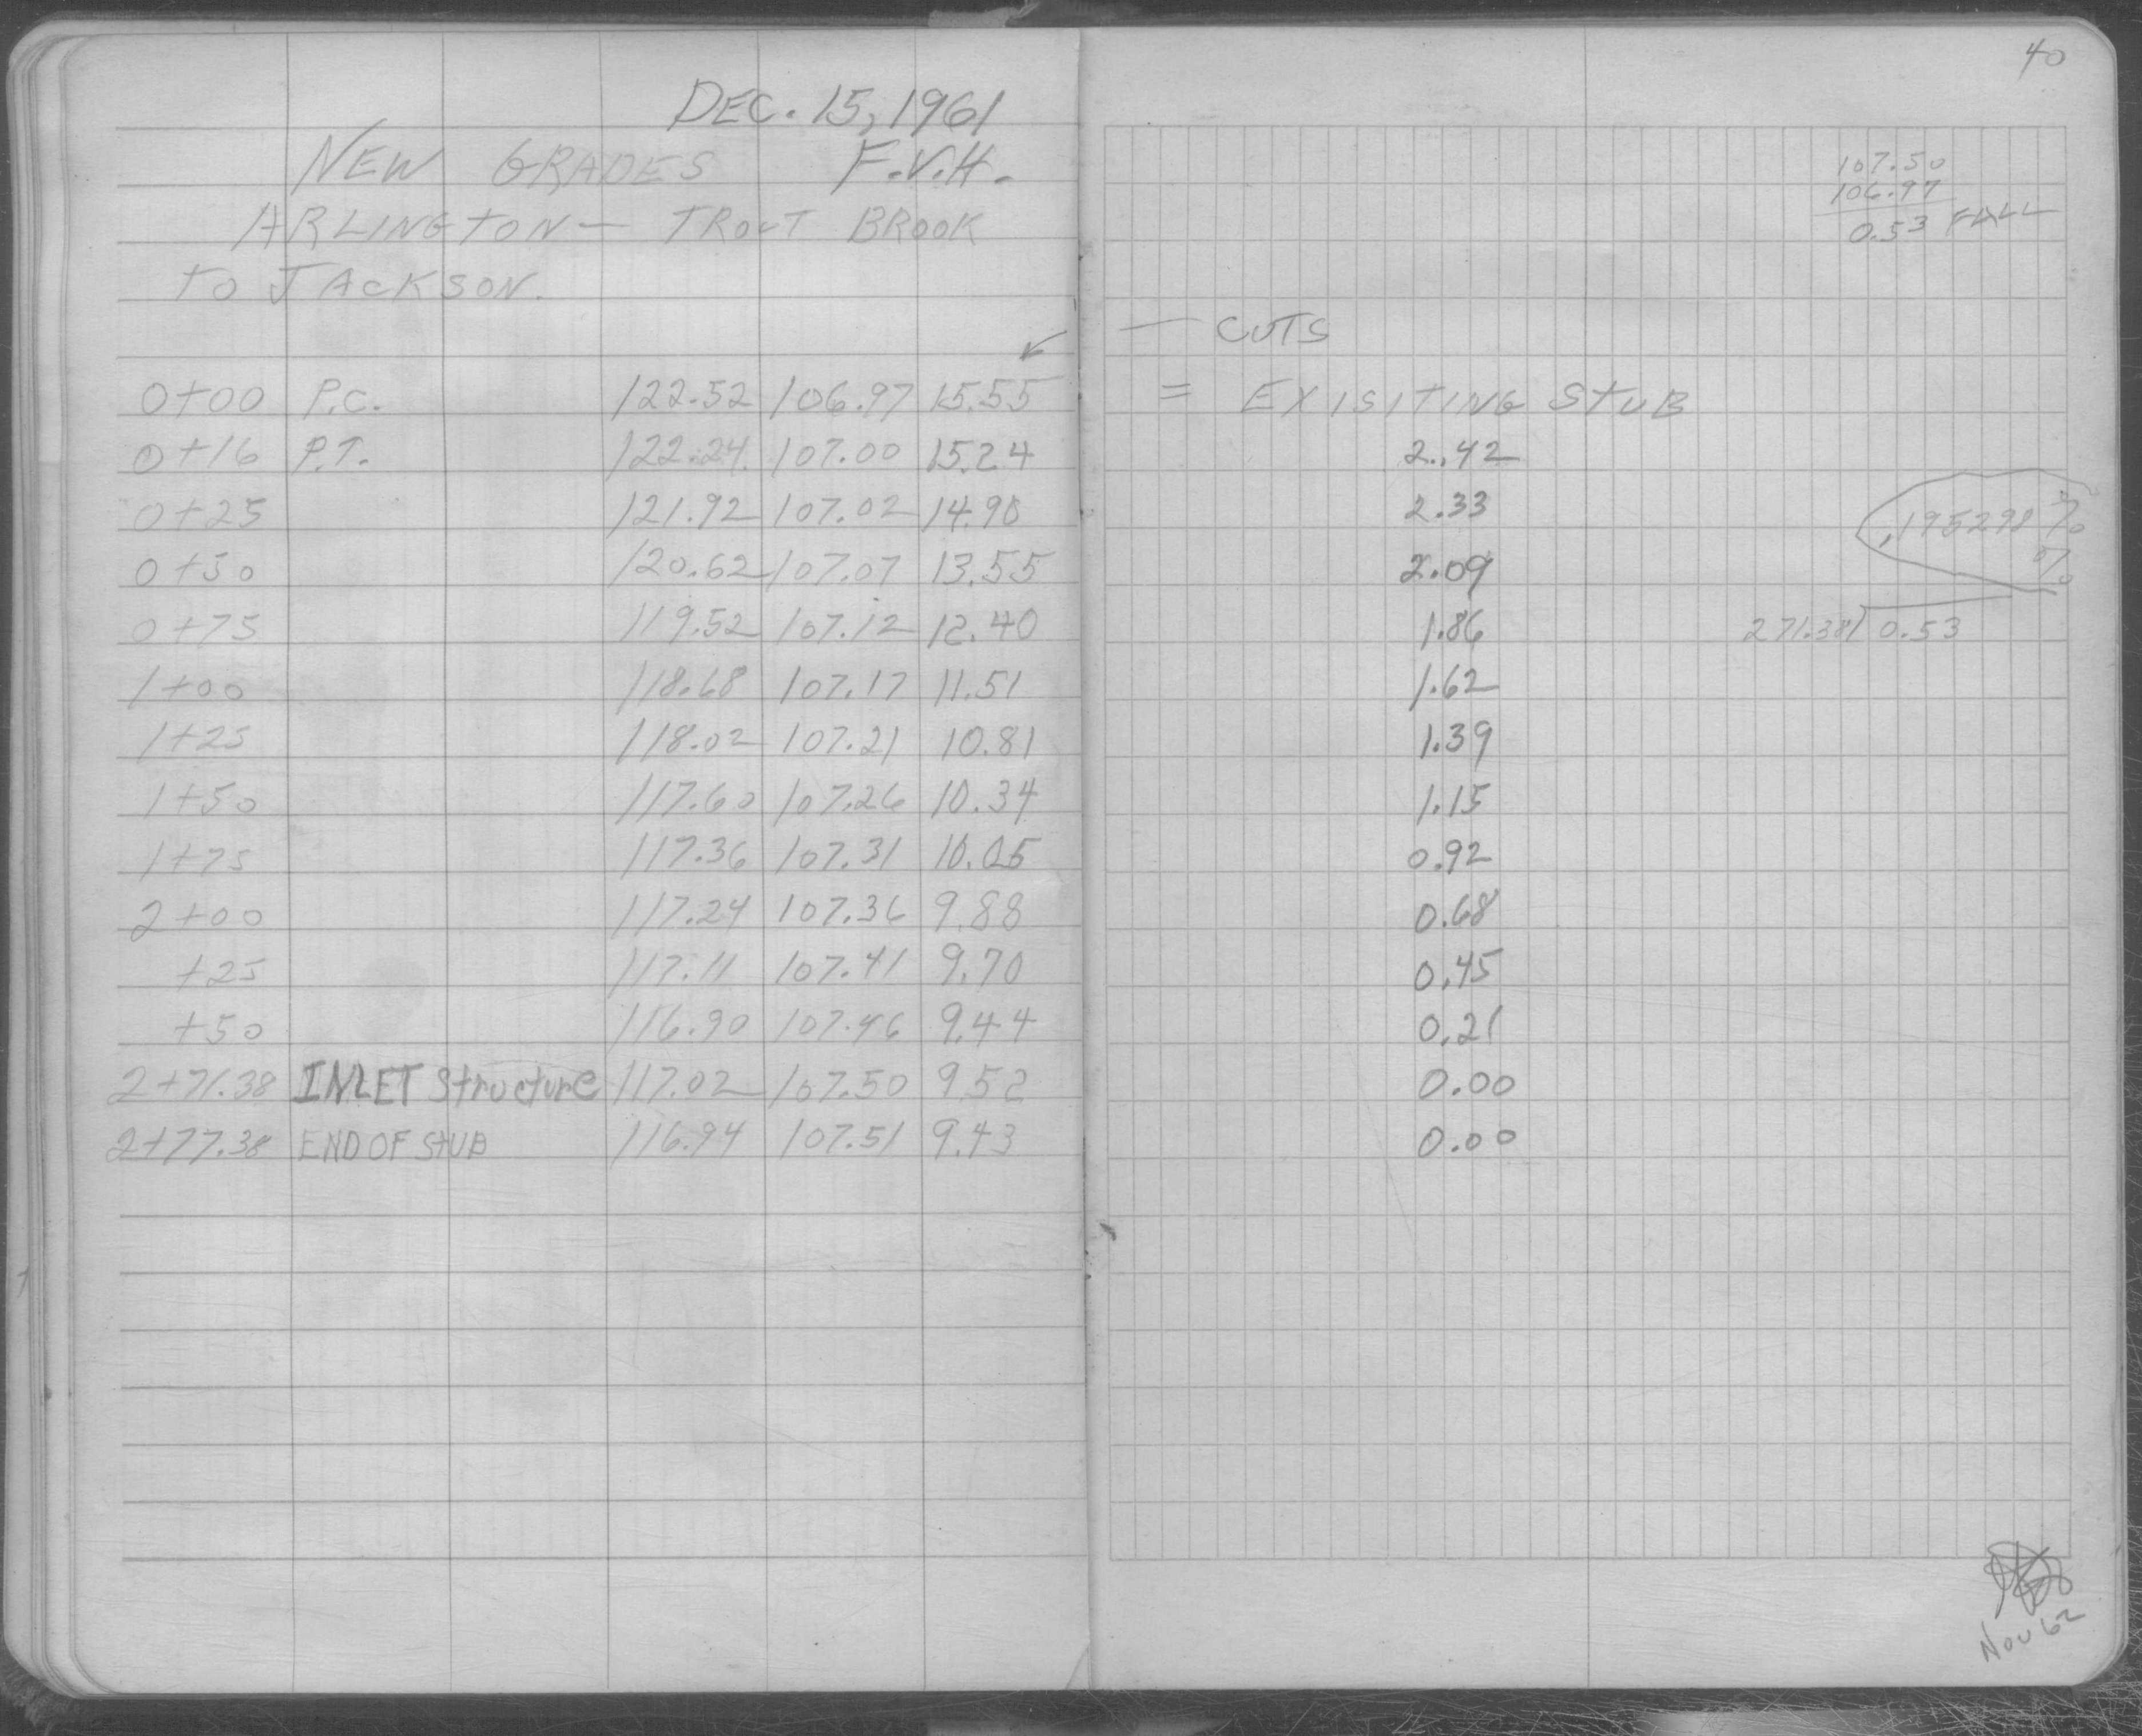 DEC. 15, 1961
NEW GRADES F.V.H.
ARLINGTON — TROUT BROOK
TO JACKSON.
0+00 P.C. 122.52 106.97 15.55
0+16 P.T. 122.24 107.00 15.24
0+25 121.92 107.02 14.90
0+50 120.62 107.07 13.55
0+75 119.52 107.12 12.40
1+00 118.68 107.17 11.51
1+25 118.02 107.21 10.81
1+50 117.60 107.26 10.34
1+75 117.36 107.31 10.05
2+00 117.24 107.36 9.88
+25 117.11 107.41 9.70
+50 116.90 107.46 9.44
2+71.38 INLET Structure 117.02 107.50 9.52
2+77.38 END OF STUB 116.94 107.51 9.43
40
107.50
106.97
0.53 FALL
— CUTS
= EXISITING STUB
2.42
2.33
2.09
1.86
1.62
1.39
1.15
0.92
0.68
0.45
0.21
0.00
0.00
.195298 %
%
271.38) 0.53
Nov 62